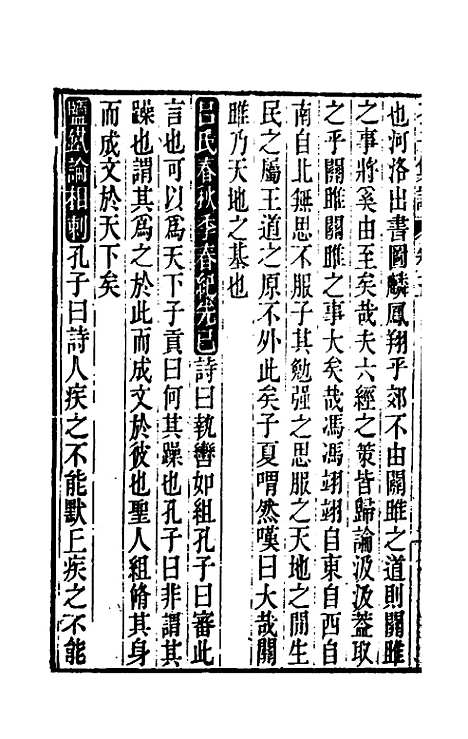 也河洛出書圖麟鳳翔乎郊不由關雎之道則關雎
之事將奚由至矣哉夫六經之策皆歸論汲汲葢取
之乎關雎關雎之事大矣哉馮馮翊翊自東自西自
南自北無思不服子其勉强之思服之天地之閒生
民之屬王道之原不外此矣子夏喟然嘆曰大哉關
雎乃天地之基也
吕氏春秋季春紀先已詩曰執轡如組孔子曰審此
言也可以爲天下子貢曰何其躁也孔子曰非謂其
躁也謂其爲之於此而成文於彼也聖人組脩其身
而成文於天下矣
鹽鐵論相刺孔子曰詩人疾之不能默丘疾之不能